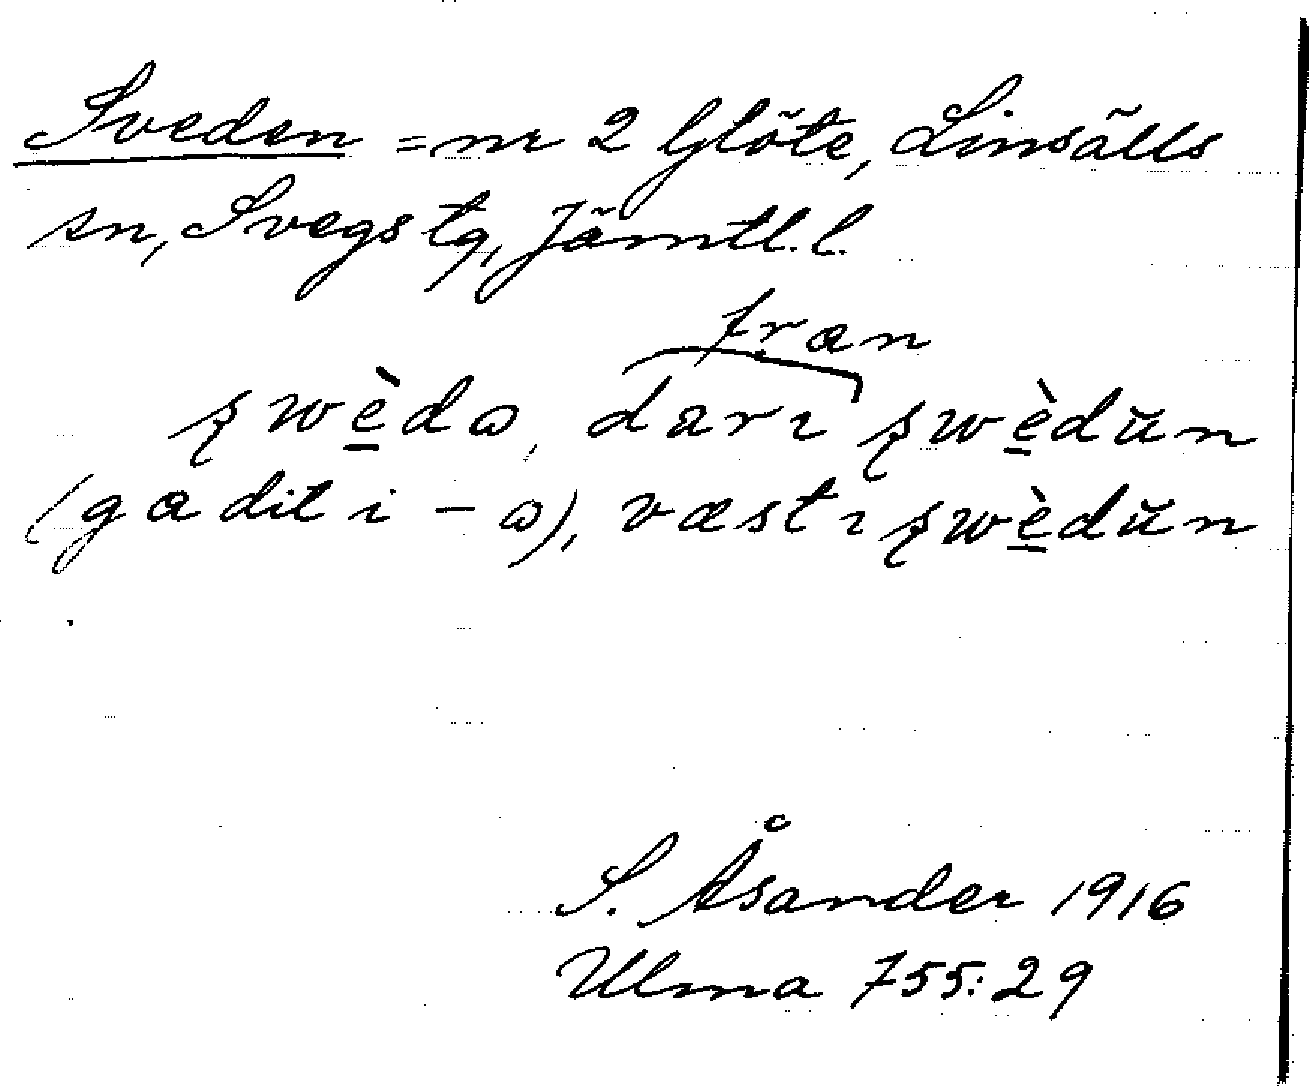 Sveden = nr 2 Glöte, Linsälls
sn, Svegs tg, Jämtl. l.
fran
swèdω, darı swèdŭn
(ga dit i - ω), væst ı swèdŭn
S. Åsander 1916
Ulma 755:29